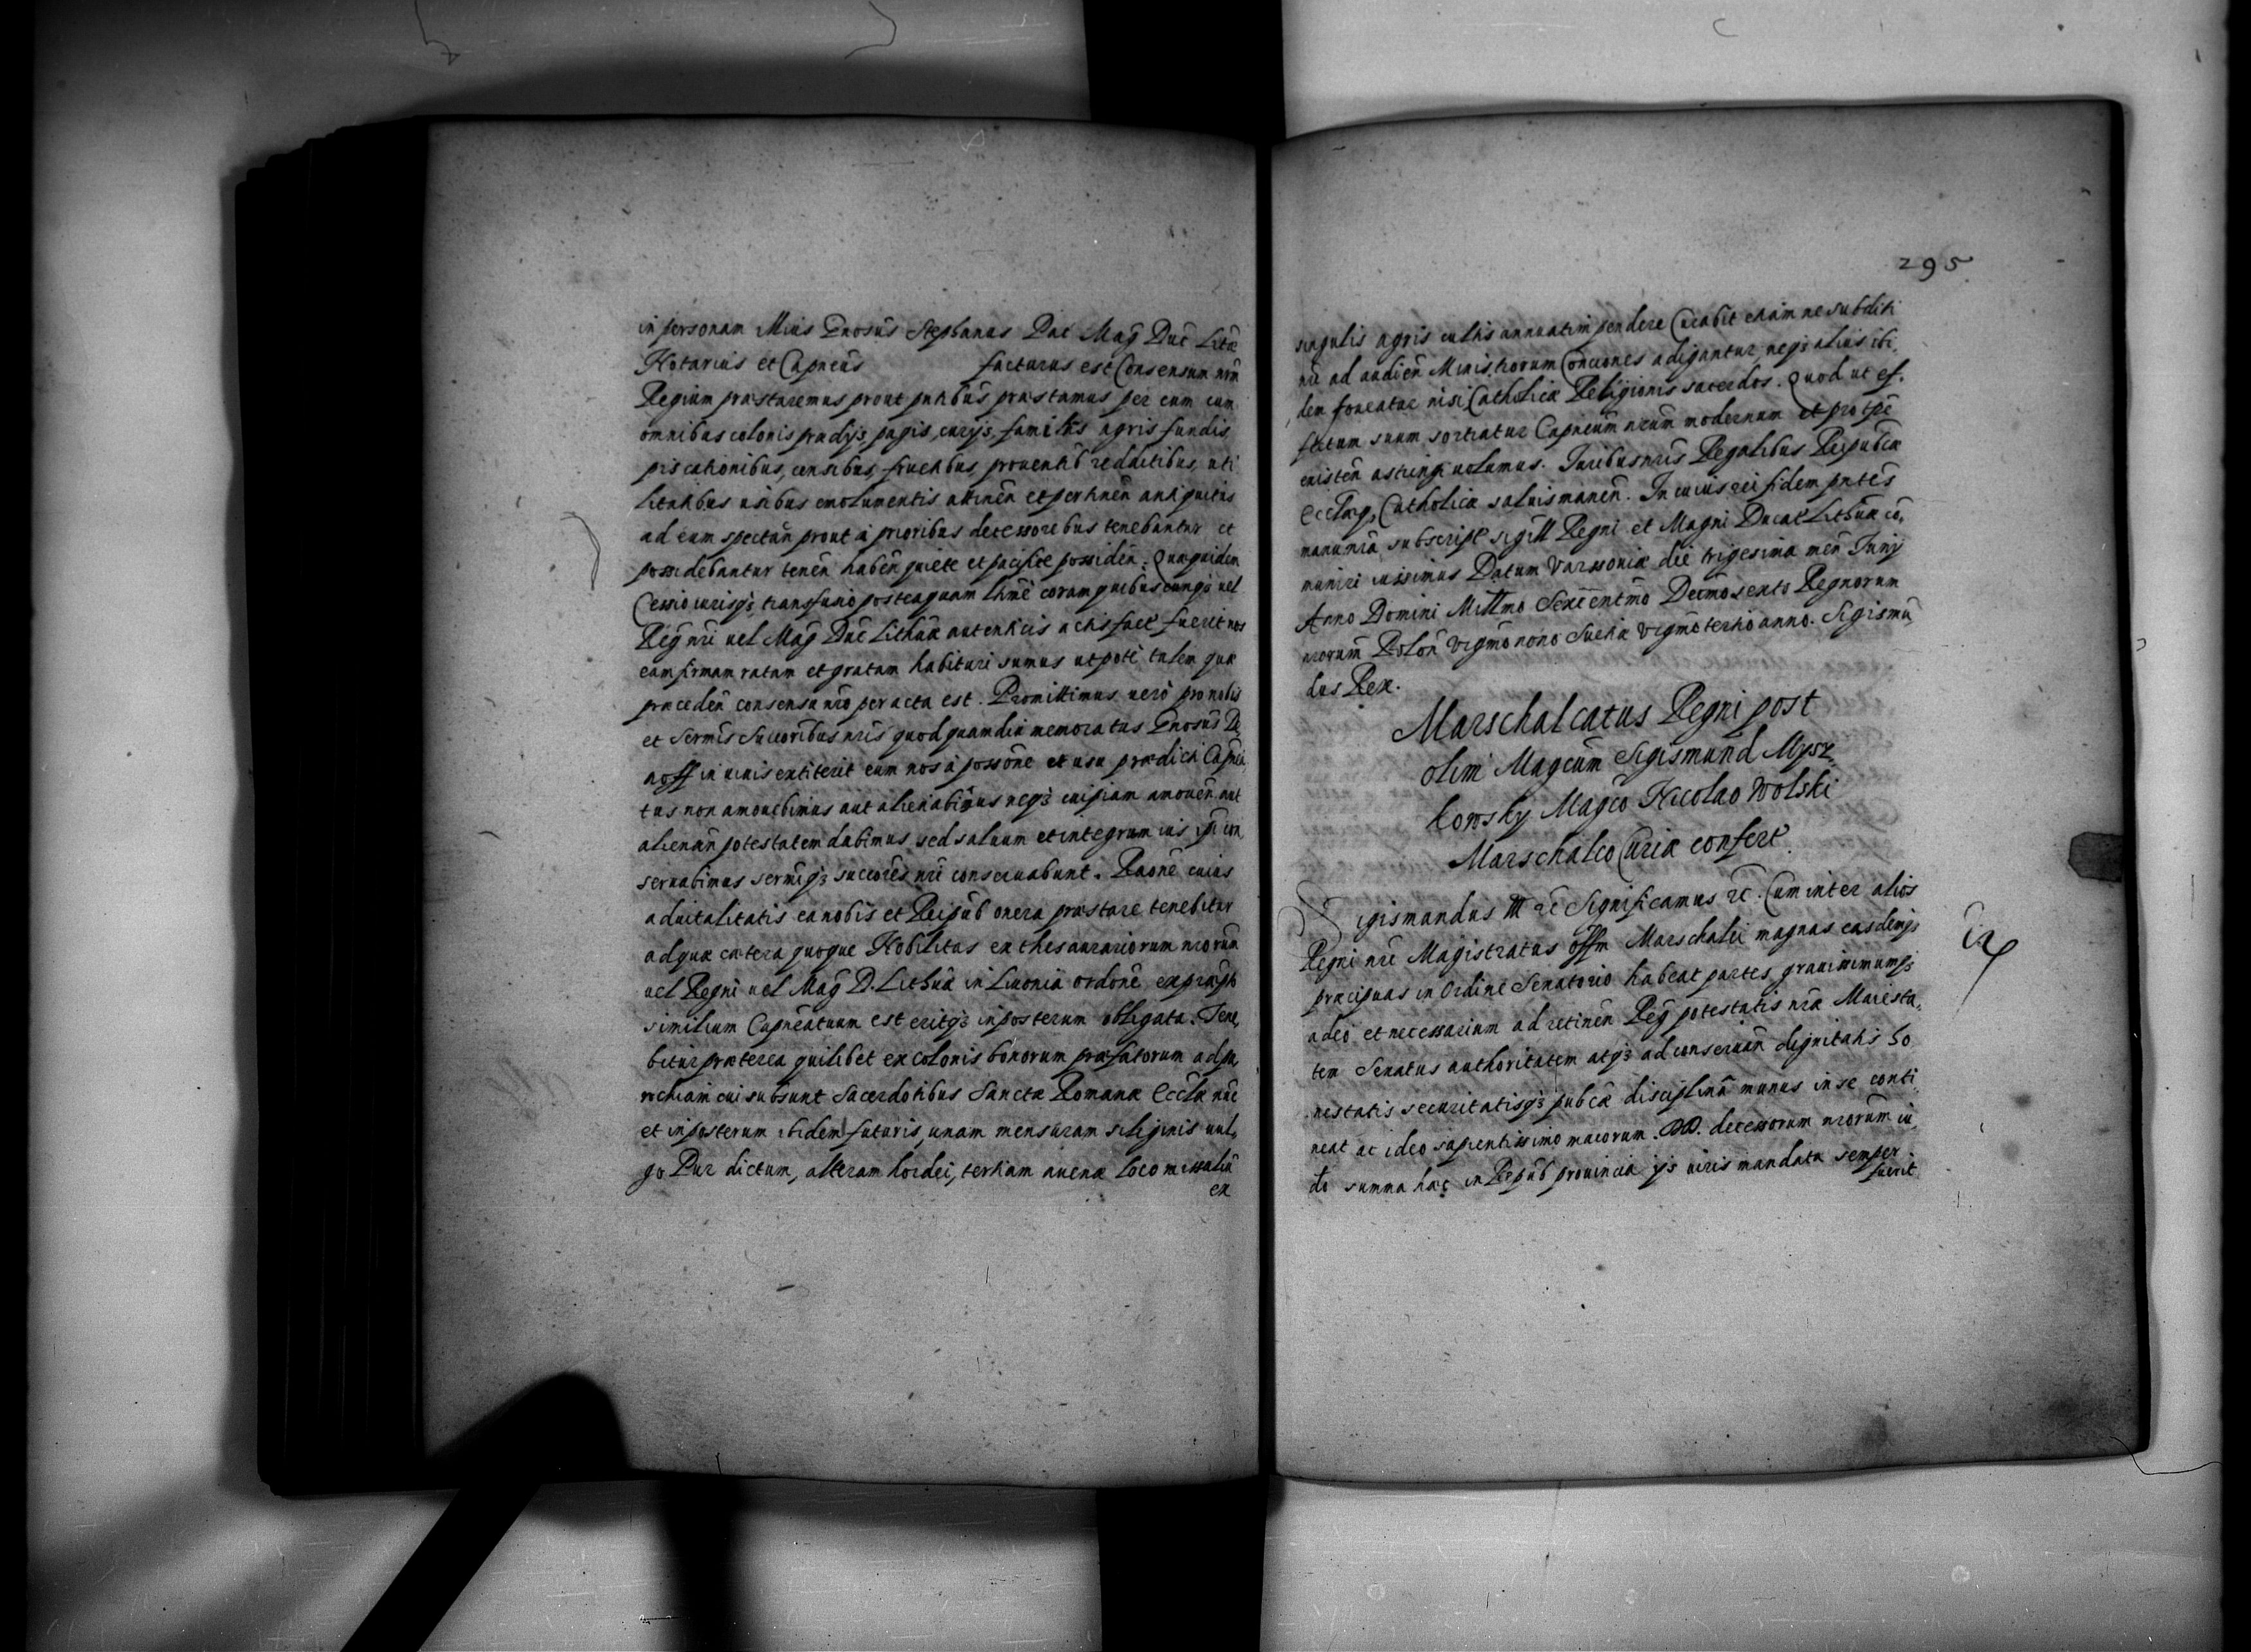 in personam illius Gnosus Stephanus Pac Mag Duc Litæ
Notarius et Capneus facturus est Consensum nrm
Regium præstaremus prout pntibus præstamus per eum cum
omnibus colonis prædijs, pagis, curijs, familijs agris fundis
piscationibus, censibus, fructibus, prouentib redditibus, uti
litatibus usibus emolumentis attinen et pertinen antiquitus
ad eam spectan prout à prioribus decessoribus tenebantur et
possidebantur tenen haben quiete et pacifice possiden. Quæquidem
Cessio iurisq transfusio posteaquam coram quibuscunq uel
Regni nri uel Mag Duc Lithuæ autenticis actis fact fuerit nos
eam firmam ratam et gratam habituri sumus utpote talem quæ
præceden consensu nro peracta est. Promittimus uero pro nobis
et Sermis Succoribus nris quod quamdiu memoratus Gnosus
in uiuis extiterit eum nos à possone et usu prædicti Capnea
tus non amouebimus aut alienabimus neq cuipiam amouen aut
alienan potestatem dabimus sed saluum et integrum ius ipi con
seruabimus sermiq succores nri conseruabunt. Raone cuius
aduitalitatis ea nobis et Reipub onera præstare tenebitur
ad quæ cætera quoque Nobilitas ex thesaurariorum nrorum
uel Regni uel Mag D. Lithuæ in Liuonia ordone ex
similium Capneatuum est eritq in posterum obligata. Tene,
bitur præterea quilibet ex colonis bonorum præfatorum ad pa,
rochiam cui subsunt Sacerdotibus Sanctæ Romanæ Ecclæ nuc
et in posterum ibidem futuris, unam mensuram siliginis uul,
go Pur dictum, alteram hordei, tertiam auenæ loco missaliu
ex
295
singulis agris cultis annuatim pendere Curabit etiam ne subditi
nri ad audien Ministrorum Conciones adigantur, neq alius ibi,
dem foueatur nisi Catholicæ Religionis sacerdos. Quod ut ef,
fectum suum sortiatur Capneum nrum modernum et pro tpe
existen astringi uolumus. Iuribus nris Regalibus Reipubcæ
Ecclæq Catholicæ saluis manen. In cuius rei fidem pntes
manu nra subscript sigill Regni et Magni Ducat Lithuæ co,
muniri iussimus Datum Varssouiæ die trigesima men Junij
Anno Domini Millmo Sexcentmo Decimosexto Regnorum
nrorum Polon Vigmonono Sueciæ Vigmotertio anno. Sigismu,
dus Rex.
Marschalcatus Regni post
olim Magcum Sigismund Mysz,
kowsky Magco Nicolao Wolski
Marschalco Curiæ confert.
Sigismundus III etc Significamus etc. Cum inter alios
Regni nri Magistratus offm Marschalci magnas easdemq
præcipuas in Ordine Senatorio habeat partes, grauissimumq
adeo et necessarium ad retinen Reg potestatis nræ Maiesta,
tem Senatus authoritatem atq ad conseruan dignitatis ho
nestatis securitatisq pubcæ disciplina munus in se conti,
neat ac ideo sapientissimo maiorum. DD. decessorum nrorum iu,
do summa hac in Repub prouincia ijs uiris mandata semper
fuerit